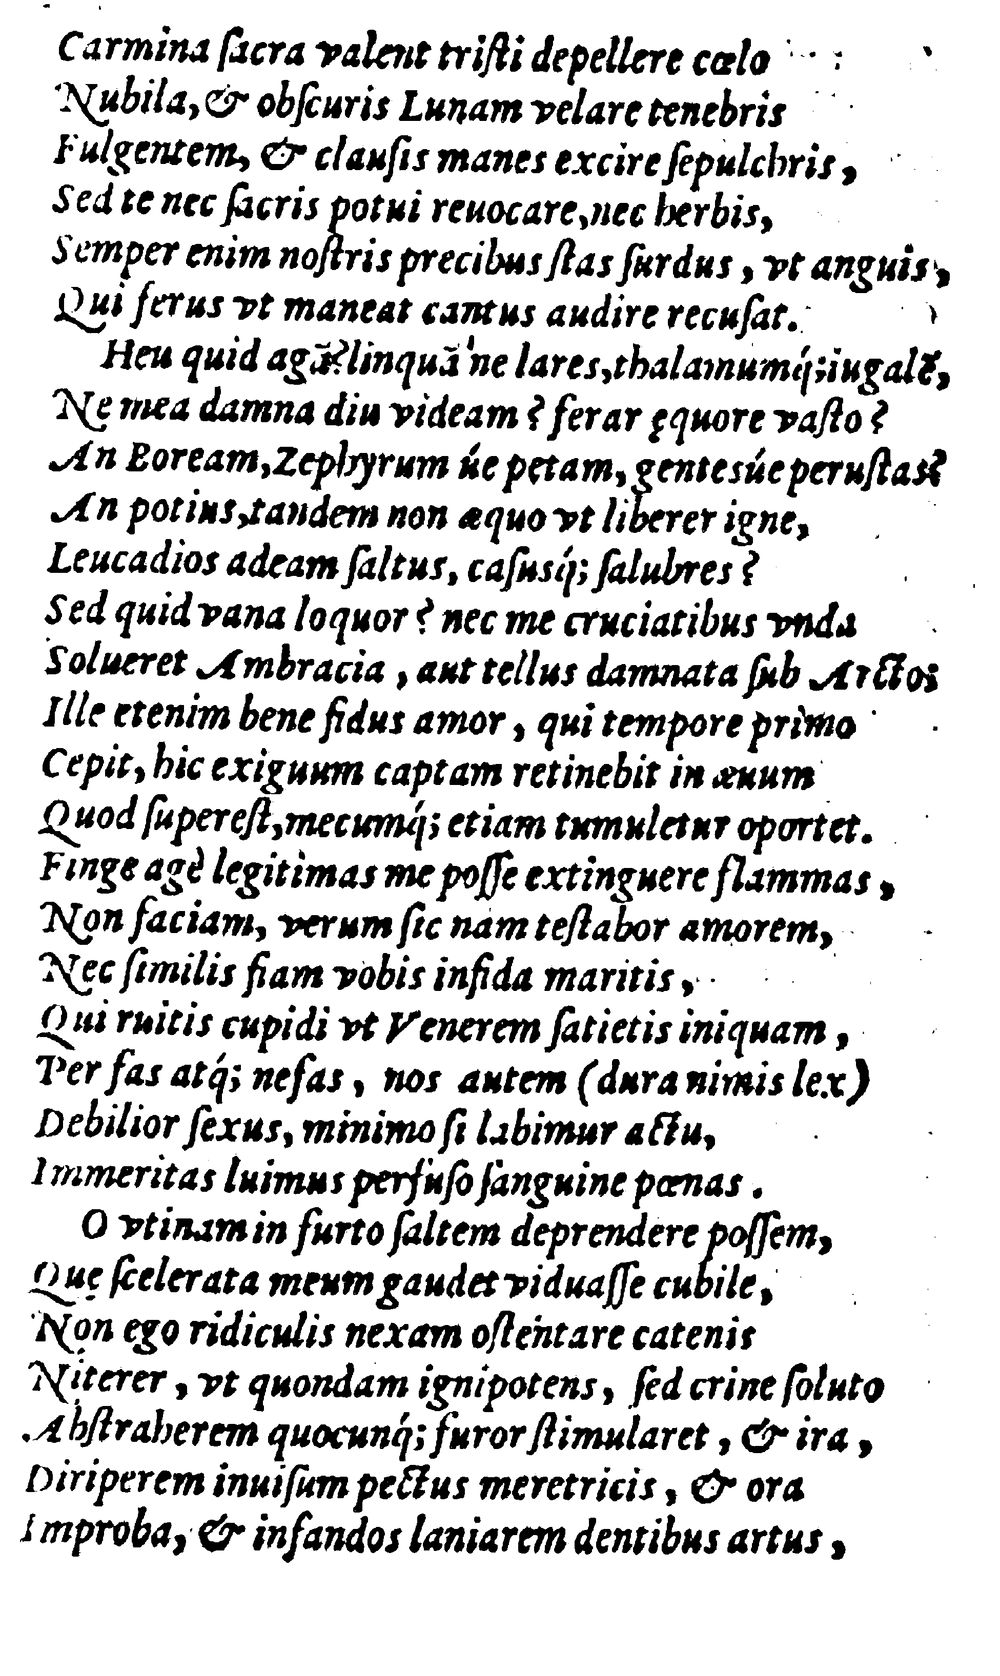 Carmina ſacra valent triſti depellere cœlo
Nubila, & obſcuris Lunam velare tenebris
Fulgentem, & clauſis manes excire ſepulchris,
Sed te nec ſacris potui reuocare, nec herbis,
Semper enim noſtris precibus ſtas ſurdus, vt anguis,
Qui ferus vt maneat cantus audire recuſat.
Heu quid agã? linquã ne lares, thalamumq́; iugalẽ,
Ne mea damna diu videam? ferar ęquore vaſto?
An Boream, Zephyrum úe petam, gentesúe peruſtas?
An potius, tandem non æquo vt liberer igne,
Leucadios adeam ſaltus, caſusq́; ſalubres?
Sed quid vana loquor? nec me cruciatibus vnda
Solueret Ambracia, aut tellus damnata ſub Arctoi
Ille etenim bene fidus amor, qui tempore primo
Cepit, hic exiguum captam retinebit in æuum
Quod ſupereſt, mecumq́; etiam tumuletur oportet.
Finge agè legitimas me poſſe extinguere flammas,
Non faciam, verum ſic nam teſtabor amorem,
Nec ſimilis fiam vobis infida maritis,
Qui ruitis cupidi vt Venerem ſatietis iniquam,
Per fas atq́; nefas, nos autem (dura nimis lex)
Debilior ſexus, minimo ſi labimur actu,
Immeritas luimus perfuſo ſanguine pœnas.
O vtinam in furto ſaltem deprendere poſſem,
Quę ſcelerata meum gaudet viduaſſe cubile,
Non ego ridiculis nexam oſtentare catenis
Niterer, vt quondam ignipotens, ſed crine ſoluto
Abſtraherem quocunq́; furor ſtimularet, & ira,
Diriperem inuiſum pectus meretricis, & ora
Improba, & infandos laniarem dentibus artus,